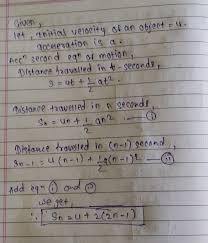 Given,
let, initial velocity of an object = u.
acceration is a.
Accⁿ second eqⁿ of motion,
Distance travelled in t- seconds,
S = ut + 1/2 at².
Distance travelled in n seconds,
Sn = un + 1/2 an² — (i)
Distance travelled in (n-1) second,
Sn-1 = u(n-1) + 1/2 a(n-1)² — (ii)
Add eqⁿ (i) and (ii)
we get,
∴ Sn = u + 2(2n-1)